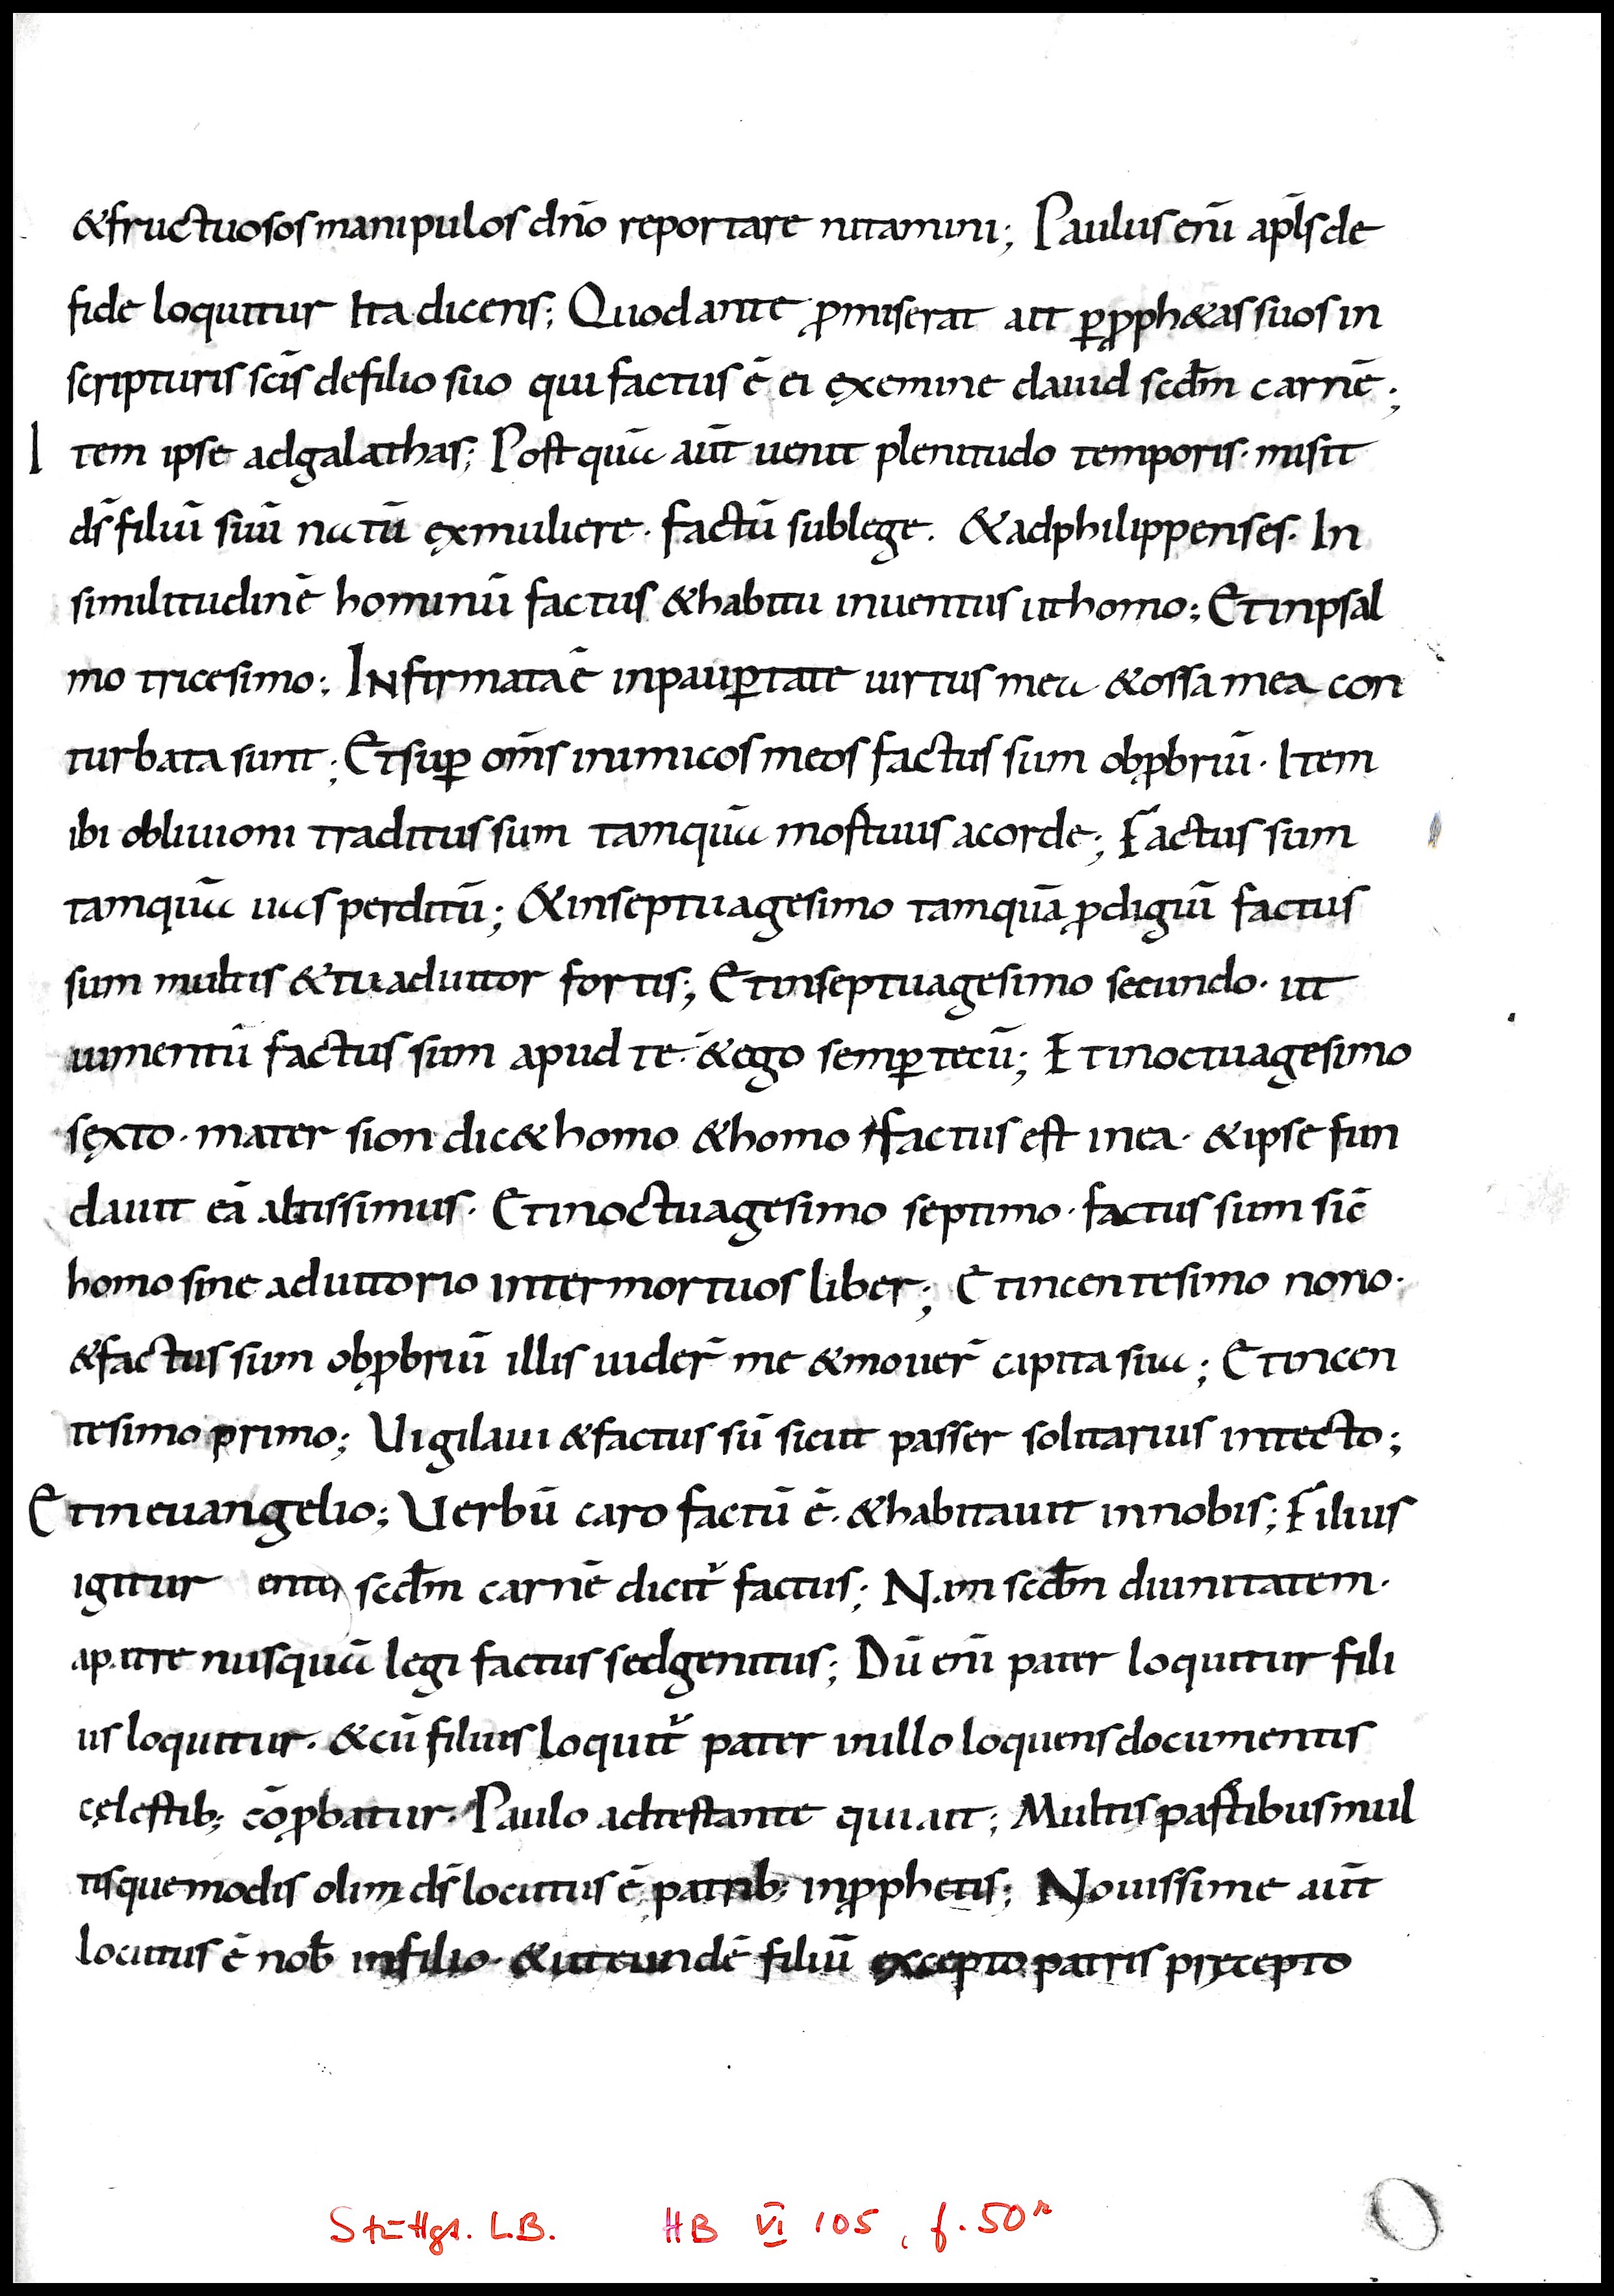 &fructuosos manipulos dn̄o reportare nitamini; Paulus eni̅ apl̄s de
fide loquitur Ita dicens; Quod ante ꝓmiserat ait ꝑꝓph&as suos in
scripturis scīs de filio suo qui factus ē ei ęx emine dauid scd̄m carnē;
Item ipse adgalathas; Postquā aūt uenit plenitudo temporis· misit
ds̄ filiū suū natū ęxmuliere· factū sublege. &adphilippenses· In
similitudinē hominū factus &habitu inuentus ut homo; Et inpsal
mo tricesimo; INfirmata ē inpauꝑtate uirtus mea &ossa mea con
turbata sunt; Et suꝑ om̄s inimicos meos factus sum obꝓbriū· Item
ibi obliuioni traditus sum tamquā mortuus acorde; Factus sum
tamquā uas perditū; &inseptuagesimo tamquā ꝓdigiū factus
sum multis &tu adiutor fortis; Et inseptuagesimo secundo· ut
iumentū factus sum apud te· &ego semꝑ tecū; Et inoctuagesimo
sęxto· mater sion dic& homo &homo factus est inea· &ipse fun
dauit eā altissimus· Et inoctuagesimo septimo· factus sum sic̄
homo sine adiutorio inter mortuos liber; Et incentesimo nono·
&factus sum obꝓbriū illis uider̄ me &mouer̄ capita sua; Et incen
tesimo primo; Uigilaui &factus sū sicut passer solitarius intecto;
Et in euangelio; Uerbū caro factū ē· &habitauit innobis; Filius
igitur scd̄m carnē dicit̄ factus; Nam scd̄m diuinitatem·
apatre nusquā legi factus sed genitus; Dū eni̅ pater loquitur fili
us loquitur· &cū filius loquit̄ pater inillo loquens documentis
cęlestib; cōꝓbatur· Paulo adtestante qui ait; Multis partibus mul
tisque modis olim ds̄ locutus ē patrib; inꝓphetis; Nouissime aūt
locutus ē nob̄ infilio· &ut eundē filiū excepto patris pręcepto
Stuttgt. L.B. HB VI 105, f. 50r